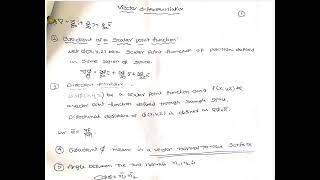 Vector Differentiation
①
① ∇ = ∂/∂x i + ∂/∂y j + ∂/∂z k
② Gradient of a Scalar point function
Let ϕ(x,y,z) be a Scalar point function of position defined
in some region of space.
∇ϕ = ∂ϕ/∂x i + ∂ϕ/∂y j + ∂ϕ/∂z k
③ Direction
be a scalar point function and f(x,y,z) be
vector point function defined through
Directional derivative of ϕ(x,y,z) is defined as
④ Gradient ϕ means is a vector normal to the surface
⑤ Angle between the two normal n₁, n₂ is
Cosθ = n₁ n₂